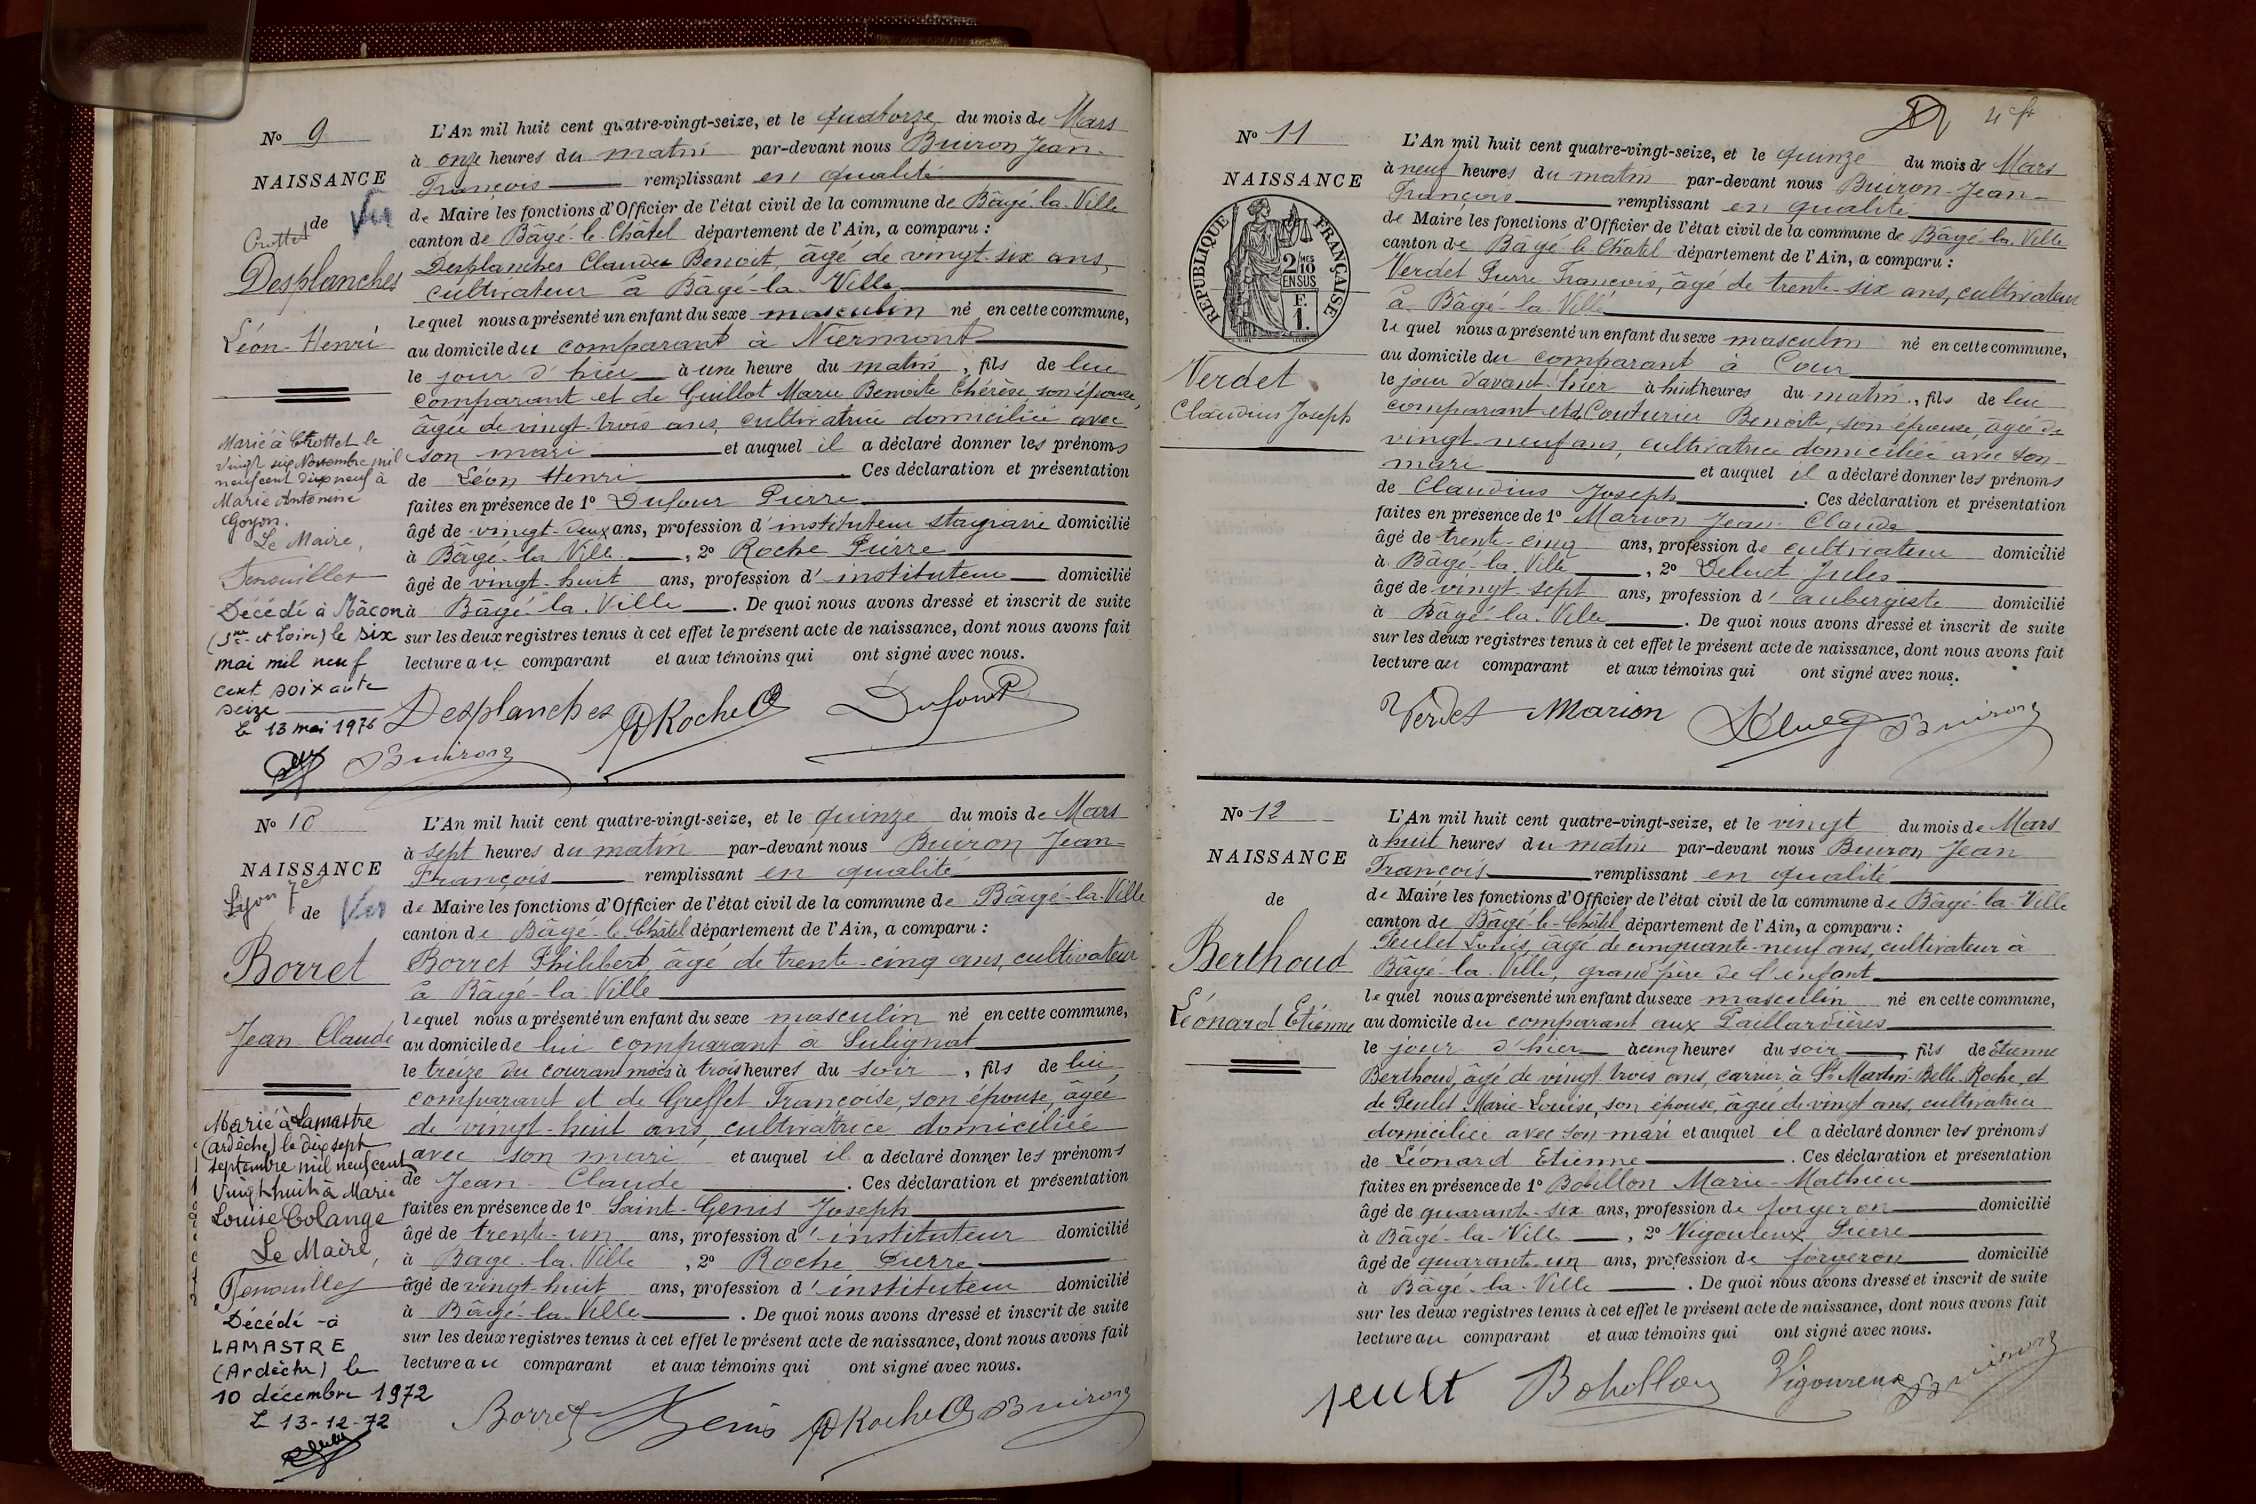 N° 9
NAISSANCE
de
Vu
Crottet
Desplanches
Léon-Henri
Marié à Crottet le
vingt six Novembre mil
neuf cent dix neuf à
Marie Antonine
Goyon.
Le Maire,
Décédé à Mâcon
(Sne et Loire) le six
mai mil neuf
cent soixante
seize
Le 13 mai 1976
L'An mil huit cent quatre-vingt-seize, et le quatorze du mois de Mars
à onze heures du matin par-devant nous Buiron Jean-
François remplissant en qualité
de Maire les fonctions d'Officier de l'état civil de la commune de Bâgé-la-Ville
canton de Bâgé-le-Châtel département de l'Ain, a comparu :
Desplanches Claude Benoit, âgé de vingt-six ans,
cultivateur à Bâgé-la-Ville
lequel nous a présenté un enfant du sexe masculin né en cette commune,
au domicile du comparant à Niermont
le jour d'hier à une heure du matin, fils de lui
comparant et de Guillot Marie Benoite Thérèse, son épouse,
âgée de vingt-trois ans, cultivatrice domiciliée avec
son mari et auquel il a déclaré donner les prénoms
de Léon Henri Ces déclaration et présentation
faites en présence de 1° Dufour Pierre
âgé de vingt-deux ans, profession d'instituteur stagiaire domicilié
à Bâgé-la-Ville, 2° Roche Pierre
âgé de vingt-huit ans, profession d'instituteur domicilié
à Bâgé-la-Ville. De quoi nous avons dressé et inscrit de suite
sur les deux registres tenus à cet effet le présent acte de naissance, dont nous avons fait
lecture au comparant et aux témoins qui ont signé avec nous.
Desplanches Roche Dufour
Buiron
N° 10
NAISSANCE
Lyon 7e
de
Vu
Borret
Jean Claude
Marié à Lamastre
(Ardèche) le dix sept
septembre mil neuf cent
Vingt huit à Marie
Louise Colange
Le Maire,
Décédé à
LAMASTRE
(Ardèche) le
10 décembre 1972
Le 13-12-72
L'An mil huit cent quatre-vingt-seize, et le quinze du mois de Mars
à sept heures du matin par-devant nous Buiron Jean-
François remplissant en qualité
de Maire les fonctions d'Officier de l'état civil de la commune de Bâgé-la-Ville
canton de Bâgé-le-Châtel département de l'Ain, a comparu :
Borret Philibert âgé de trente-cinq ans, cultivateur
à Bâgé-la-Ville
lequel nous a présenté un enfant du sexe masculin né en cette commune,
au domicile de lui comparant à Sulignat
le treize du courant mois à trois heures du soir, fils de lui
comparant et de Greffet Françoise, son épouse, âgée
de vingt-huit ans, cultivatrice domiciliée
avec son mari et auquel il a déclaré donner les prénoms
de Jean-Claude. Ces déclaration et présentation
faites en présence de 1° Saint-Genis Joseph
âgé de trente-un ans, profession d'instituteur domicilié
à Bagé-la-Ville, 2° Roche Pierre
âgé de vingt-huit ans, profession d'instituteur domicilié
à Bâgé-la-Ville. De quoi nous avons dressé et inscrit de suite
sur les deux registres tenus à cet effet le présent acte de naissance, dont nous avons fait
lecture au comparant et aux témoins qui ont signé avec nous.
Borret Genis Roche Buiron
N° 11
NAISSANCE
REPUBLIQUE FRANÇAISE
2/10 MES
EN SUS
F.
1.
Verdet
Claudius Joseph
L'An mil huit cent quatre-vingt-seize, et le quinze du mois de Mars
à neuf heures du matin par-devant nous Buiron-Jean-
François remplissant en qualité
de Maire les fonctions d'Officier de l'état civil de la commune de Bâgé-la-Ville
canton de Bâgé-le-Châtel département de l'Ain, a comparu :
Verdet Pierre François, âgé de trente-six ans, cultivateur
à Bâgé-la-Ville
lequel nous a présenté un enfant du sexe masculin né en cette commune,
au domicile du comparant à Cour
le jour d'avant-hier à huit heures du matin, fils de lui
comparant et de Couturier Benoite, son épouse, âgée de
vingt-neuf ans, cultivatrice domiciliée avec son
mari et auquel il a déclaré donner les prénoms
de Claudius Joseph. Ces déclaration et présentation
faites en présence de 1° Marion Jean-Claude
âgé de trente-cinq ans, profession de cultivateur domicilié
à Bâgé-la-Ville, 2° Deluet Jules
âgé de vingt-sept ans, profession d'aubergiste domicilié
à Bâgé-la-Ville. De quoi nous avons dressé et inscrit de suite
sur les deux registres tenus à cet effet le présent acte de naissance, dont nous avons fait
lecture au comparant et aux témoins qui ont signé avec nous.
Verdet Marion Buiron
N° 12
NAISSANCE
de
Berthoud
Léonard Etienne
L'An mil huit cent quatre-vingt-seize, et le vingt du mois de Mars
à huit heures du matin par-devant nous Buiron Jean
François remplissant en qualité
de Maire les fonctions d'Officier de l'état civil de la commune de Bâgé-la-Ville
canton de Bâgé-le-Châtel département de l'Ain, a comparu :
Peulet Louis, âgé de cinquante-neuf ans, cultivateur à
Bâgé-la-Ville, grand père de l'enfant
lequel nous a présenté un enfant du sexe masculin né en cette commune,
au domicile du comparant aux Paillardières
le jour d'hier à cinq heures du soir, fils de Etienne
Berthoud, âgé de vingt trois ans, carrier à St Martin-Belle-Roche, et
de Peulet Marie-Louise, son épouse, âgée de vingt ans, cultivatrice
domiciliée avec son mari et auquel il a déclaré donner les prénoms
de Léonard Etienne. Ces déclaration et présentation
faites en présence de 1° Bohillon Marie-Mathieu
âgé de quarante-six ans, profession de forgeron domicilié
à Bâgé-la-Ville, 2° Vigoureux Pierre
âgé de quarante-un ans, profession de forgeron domicilié
à Bâgé-la-Ville. De quoi nous avons dressé et inscrit de suite
sur les deux registres tenus à cet effet le présent acte de naissance, dont nous avons fait
lecture au comparant et aux témoins qui ont signé avec nous.
Bohillon Vigoureux Buiron